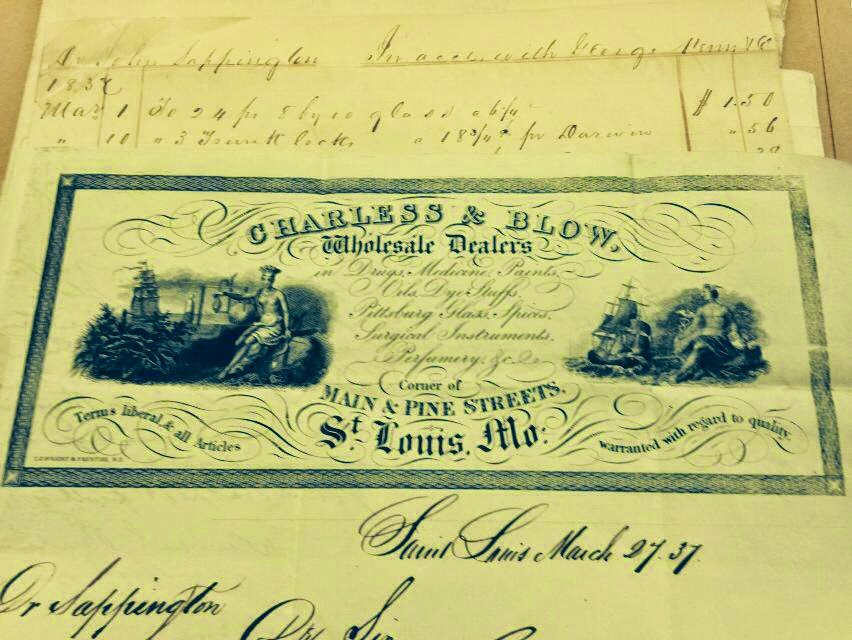 Dr John Sappington In acct with George Penn &Co
1837
Mar 1 To 24 pr 8 by 10 glass a 6¼ $ 1.50
" 10 " 3 Trunk locks a 18¾ pr Darwin " 56
CHARLESS & BLOW,
Wholesale Dealers
in Drugs, Medicine, Paints,
Oils, Dye Stuffs,
Pittsburg Glass, Spices,
Surgical Instruments,
Perfumery, &c &c
Corner of
MAIN & PINE STREETS,
St Louis, Mo:
Terms liberal, & all Articles
warranted with regard to quality.
Saint Louis March 27. 37.
Dr Sappington
Dr Sir